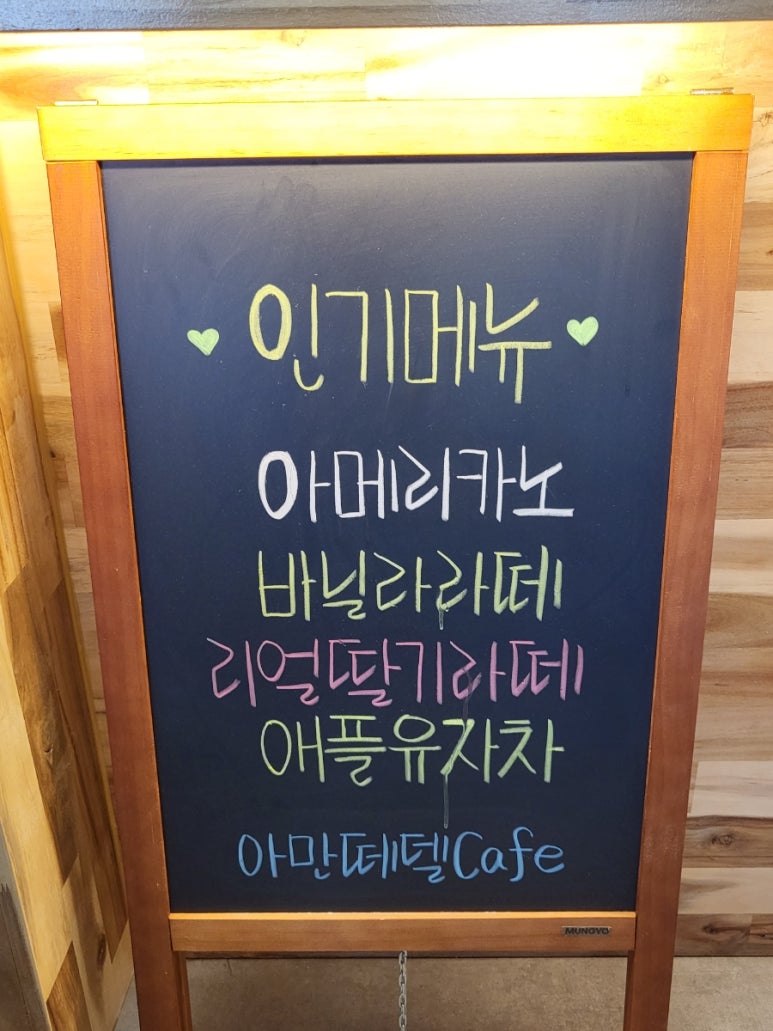 인기메뉴
아메리카노
바닐라라떼
리얼딸기라떼
애플유자차
아만떼델Cafe
MUNGYO